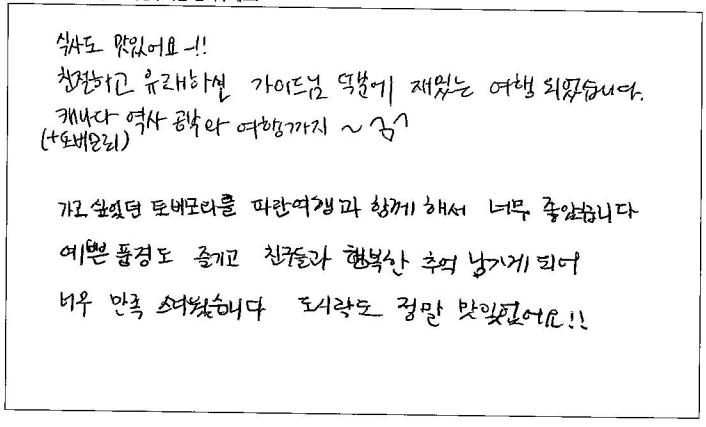 식사도 맛있어요~!!
친절하고 유쾌하신 가이드님 덕분에 재밌는 여행 되었습니다.
캐나다 역사 공부와 여행까지 ~ ^^
(+토버모리)
가고 싶었던 토버모리를 파란여행과 함께 해서 너무 좋았습니다
예쁜 풍경도 즐기고 친구들과 행복한 추억 남기게 되어
너무 만족스러웠습니다 도시락도 정말 맛있었어요!!